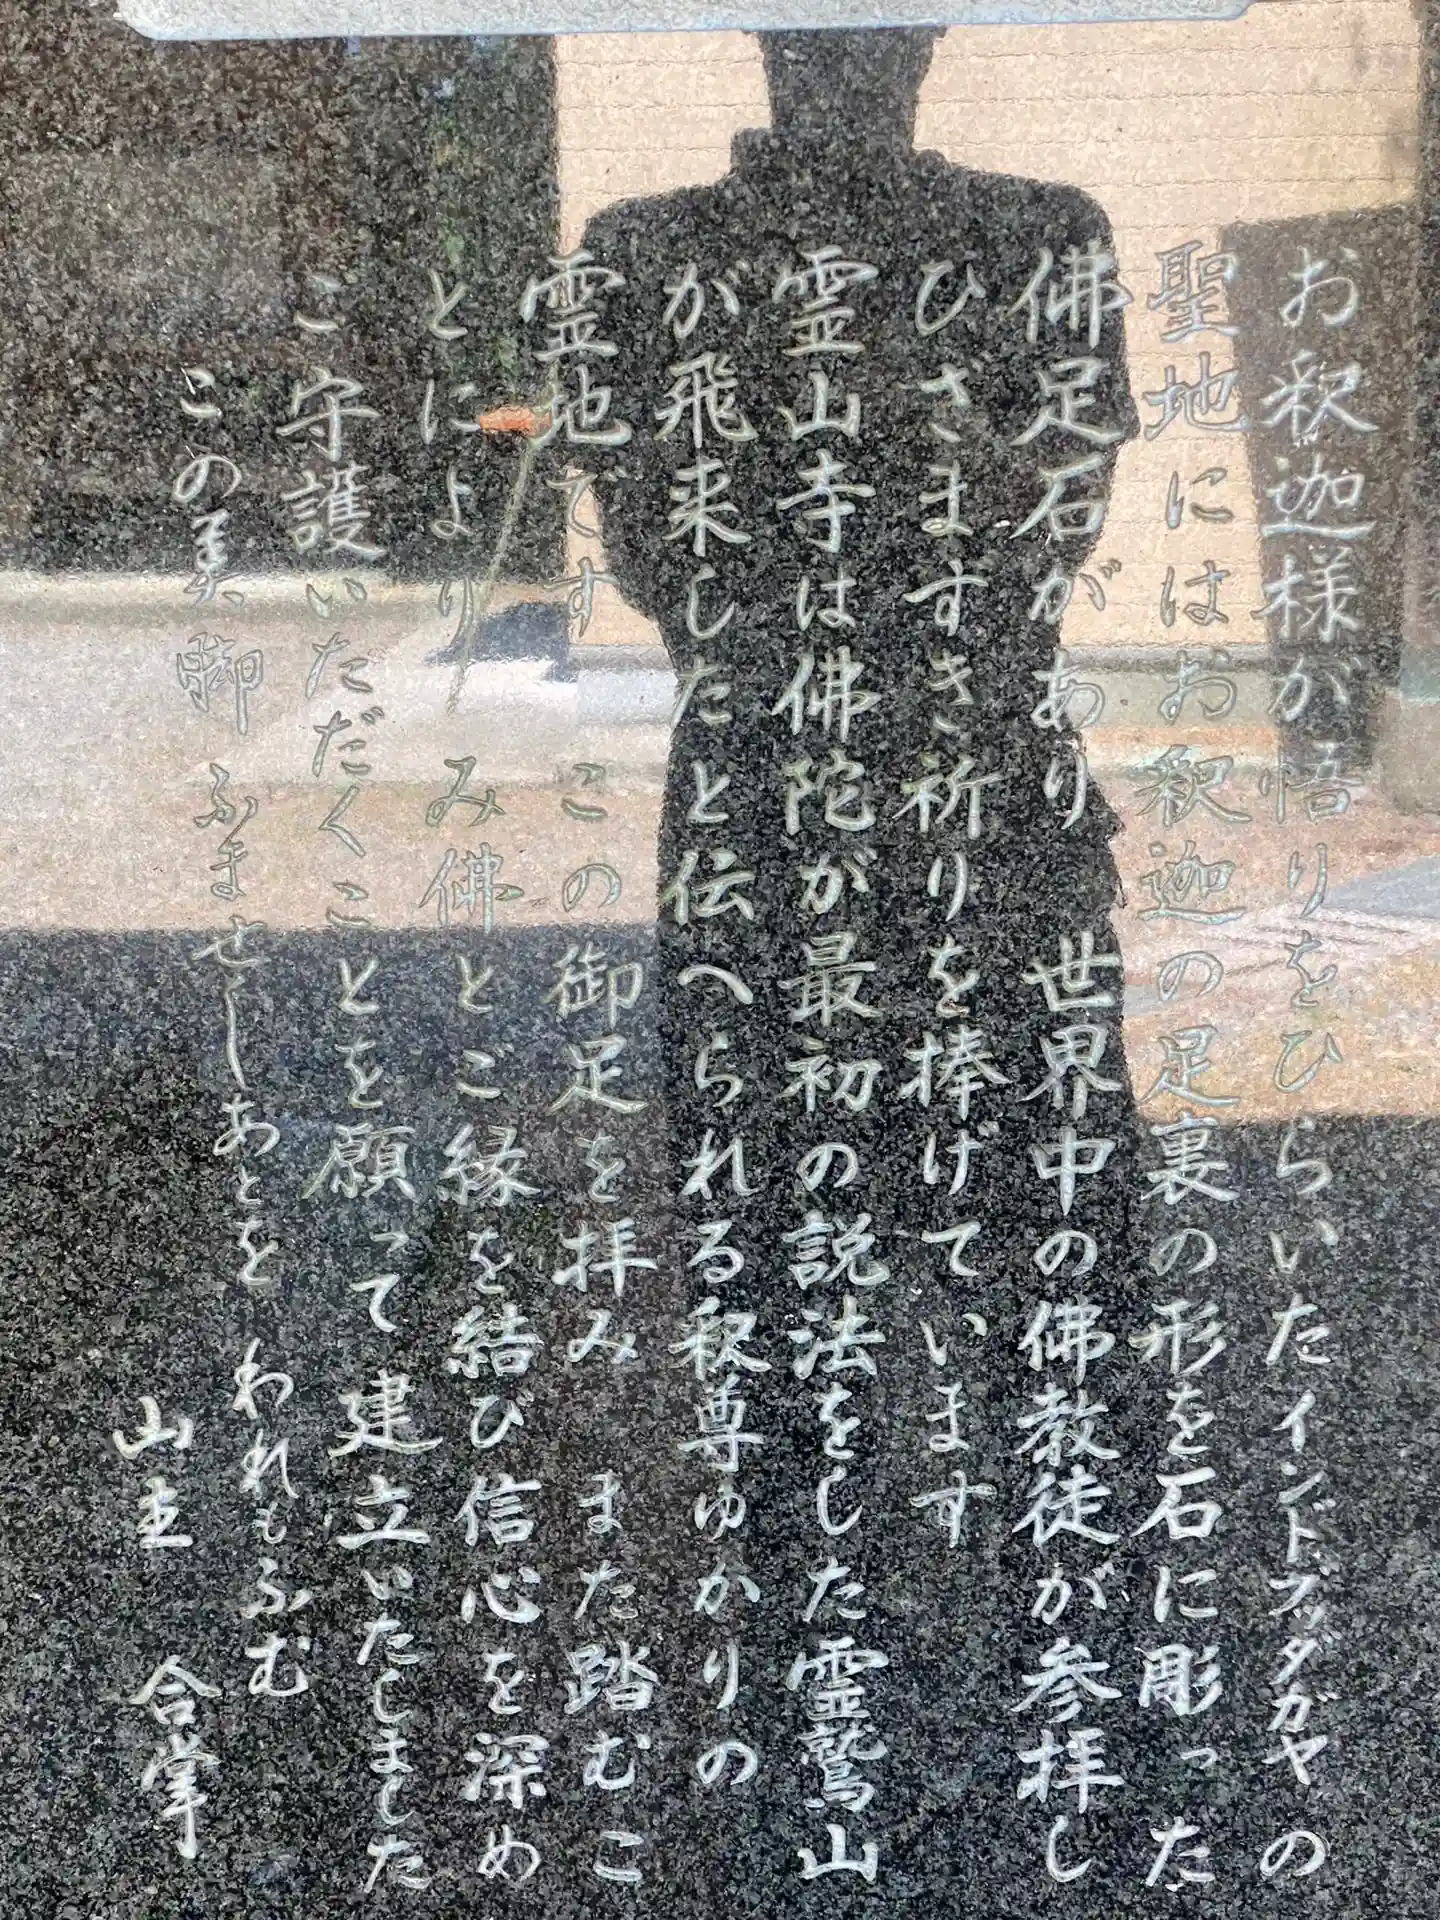 お釈迦様が悟りをひらいたインドブッダガヤの
聖地にはお釈迦の足裏の形を石に彫った
佛足石があり 世界中の佛教徒が参拝し
ひざまずき祈りを捧げています
霊山寺は佛陀が最初の説法をした霊鷲山
が飛来したと伝へられる釈尊ゆかりの
霊地です この御足を拝み また踏むこ
とにより み佛とご縁を結び信心を深め
ご守護いただくことを願って建立いたしました
この美脚ふませしあとを われもふむ
山主 合掌